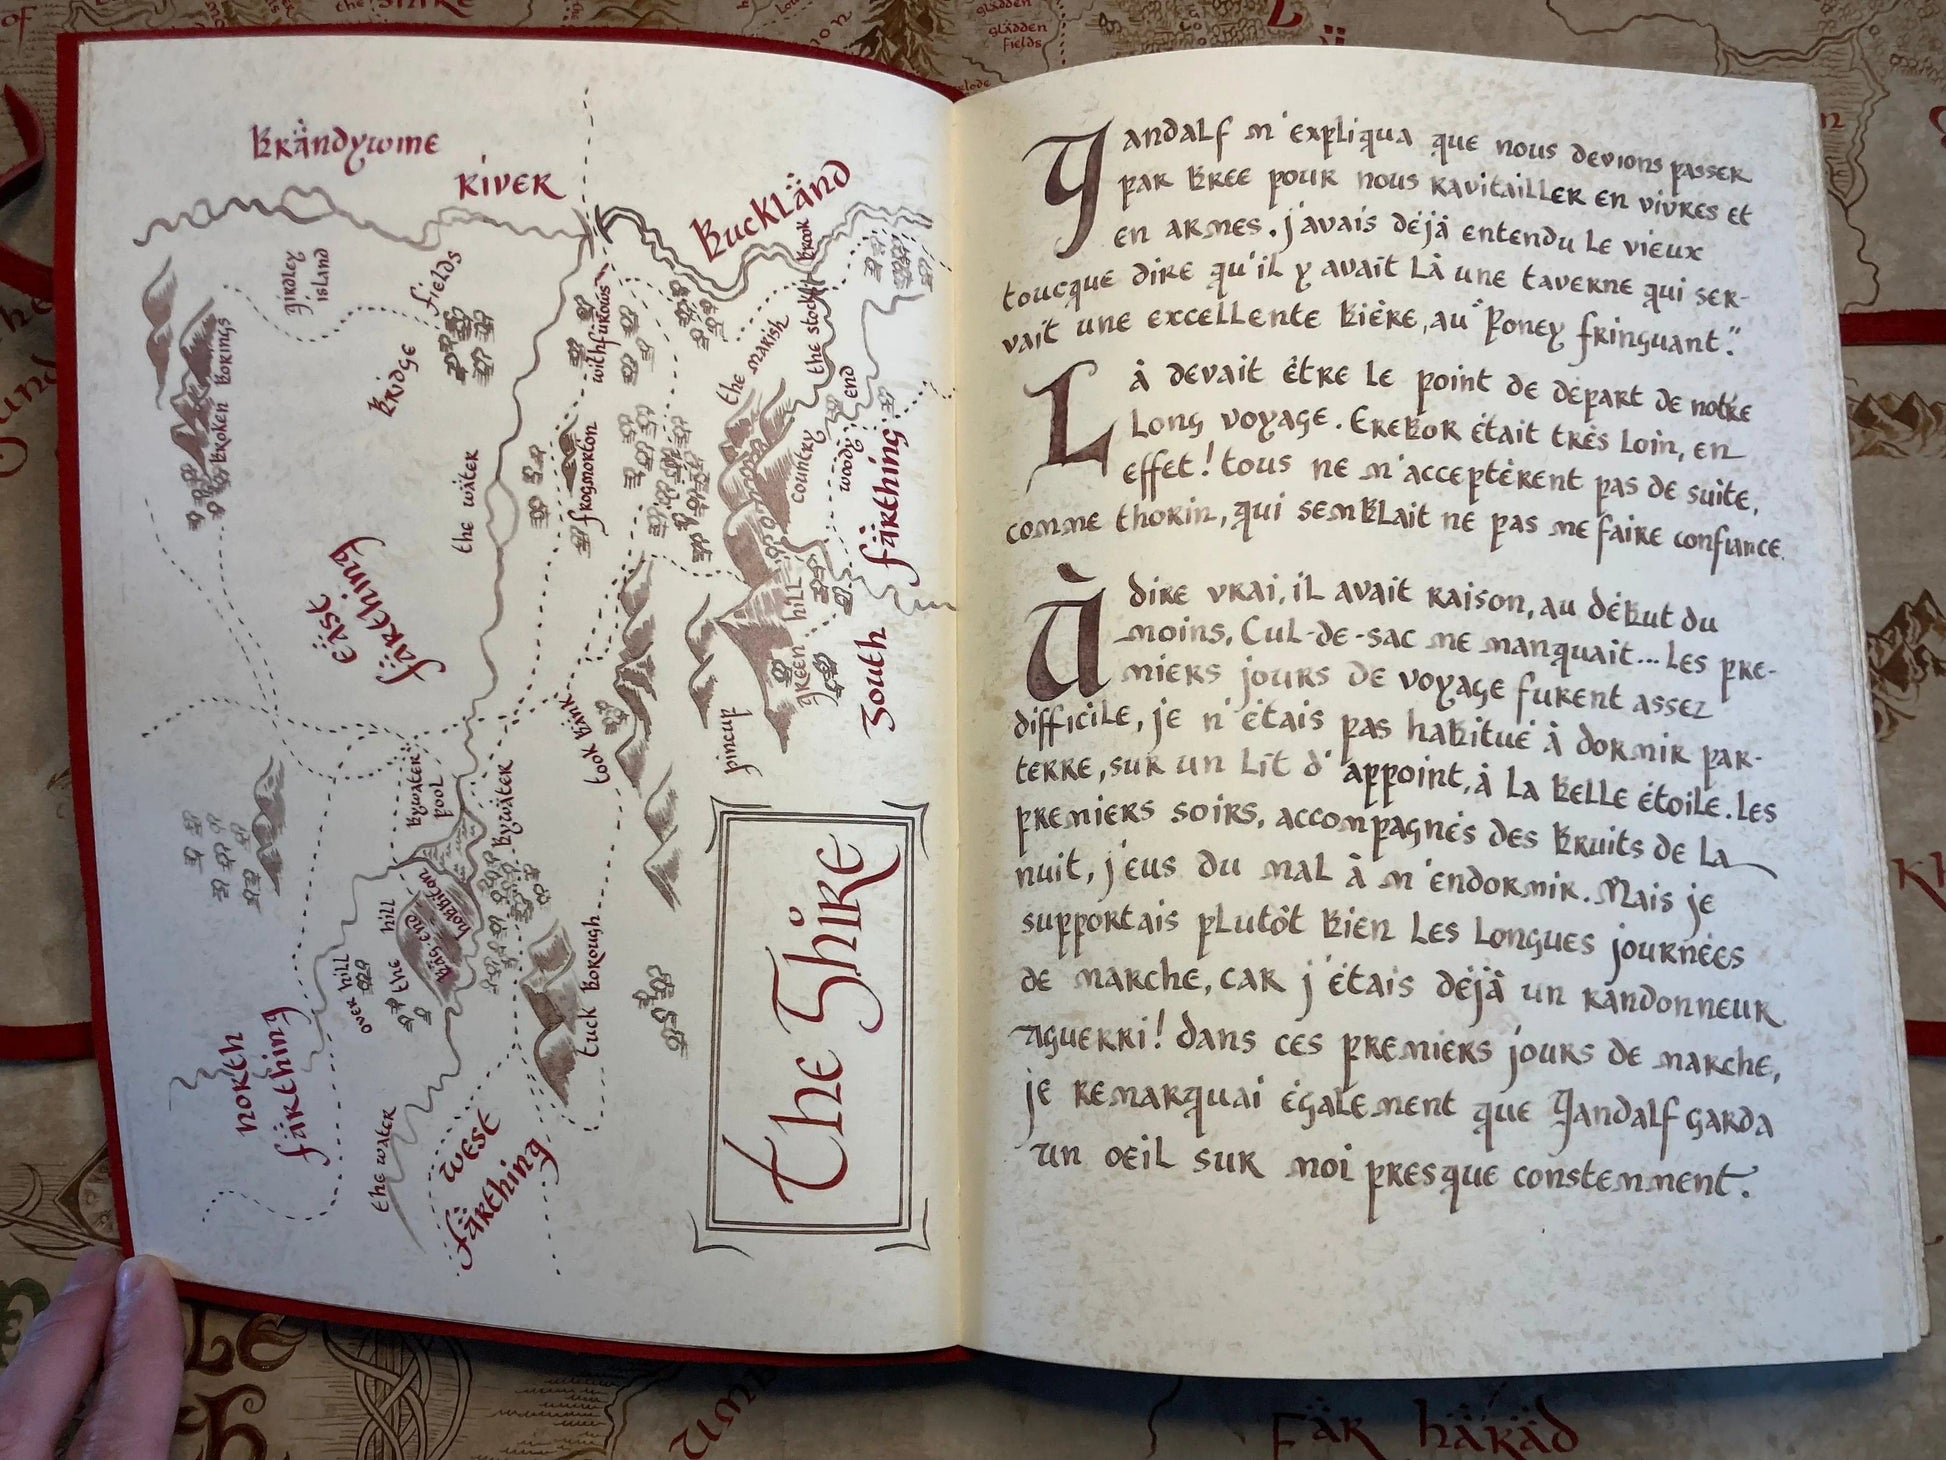 Brändywine
River
Buckländ
Girdley
Island
Bridge
fields
Broken Borings
withfurows
the marish
the stock
Brook
the wäter
frogmorton
country
woody
end
South färthing
Eäst
färthing
green hill
took Bänk
pincup
Bywäter
pool
Bywäter
the hill
Bäg-end
hobbiton
over hill
tuck Borough
north
färthing
the water
west
färthing
the Shire
Gandalf m'expliqua que nous devions passer
par Bree pour nous ravitailler en vivres et
en armes. j'avais déjà entendu le vieux
toucque dire qu'il y avait là une taverne qui ser-
vait une excellente bière, au "Poney fringuant."
Là devait être le point de départ de notre
long voyage. Erebor était très loin, en
effet! tous ne m'acceptèrent pas de suite,
comme thorin, qui semblait ne pas me faire confiance.
À dire vrai, il avait raison, au début du
moins, Cul-de-sac me manquait... Les pre-
miers jours de voyage furent assez
difficile, je n'étais pas habitué à dormir par-
terre, sur un lit d'appoint, à la belle étoile. Les
premiers soirs, accompagnés des bruits de la
nuit, j'eus du mal à m'endormir. Mais je
supportais plutôt bien les longues journées
de marche, car j'étais déjà un randonneur
aguerri! dans ces premiers jours de marche,
je remarquai également que Gandalf garda
un oeil sur moi presque constemment.
glädden
fields
fär häräd